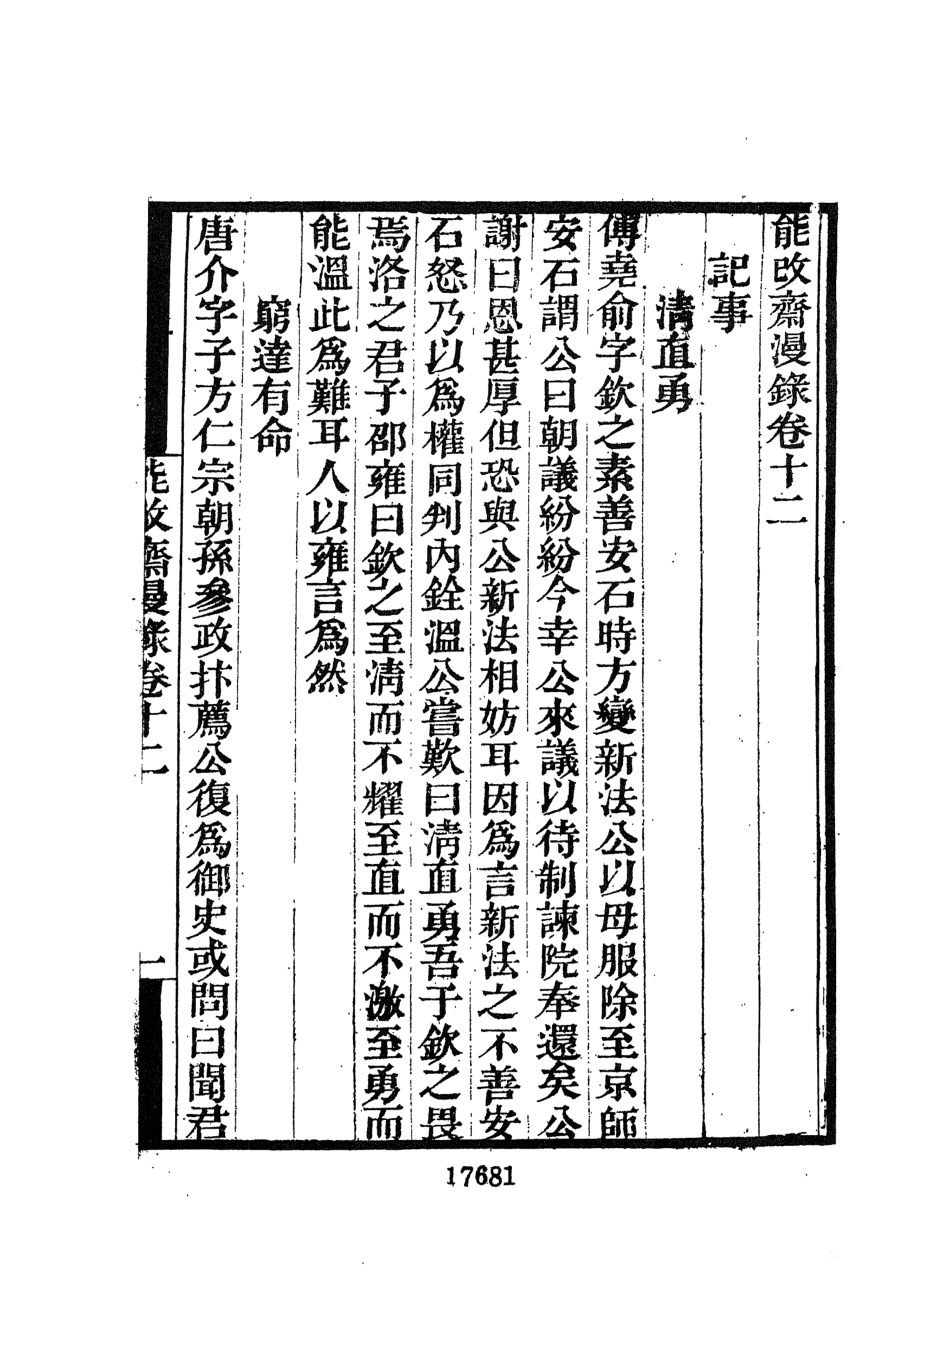 能改齋漫錄卷十二
記事
清直勇
傅堯俞字欽之素善安石時方變新法公以母服除至京師
安石謂公曰朝議紛紛今幸公來議以待制諫院奉還矣公
謝曰恩甚厚但恐與公新法相妨耳因爲言新法之不善安
石怒乃以爲權同判內銓溫公嘗歎曰清直勇吾于欽之畏
焉洛之君子邵雍曰欽之至清而不耀至直而不激至勇而
能溫此爲難耳人以雍言爲然
窮達有命
唐介字子方仁宗朝孫參政抃薦公復爲御史或問曰聞君
能改齋漫錄卷十二
一
17681